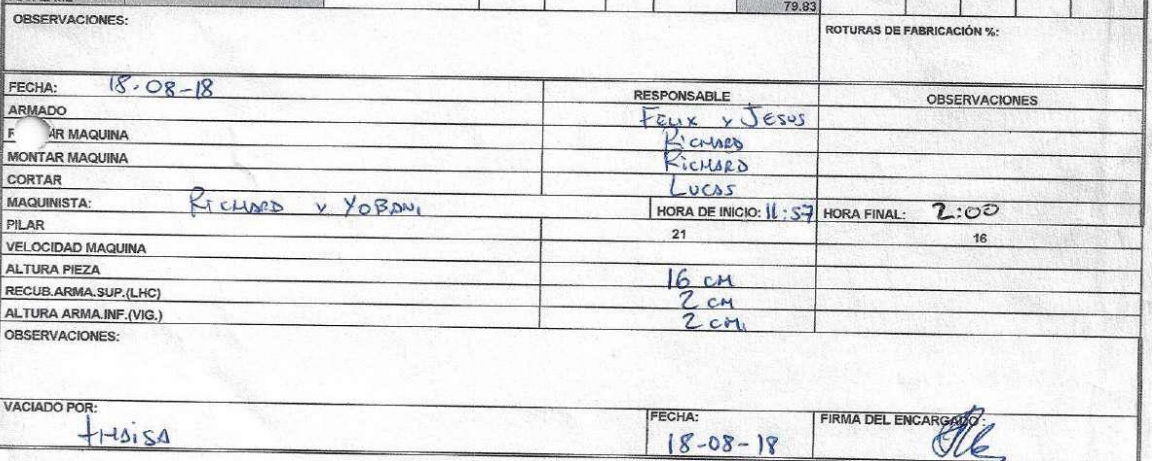 79.83
OBSERVACIONES:
ROTURAS DE FABRICACIÓN %:
FECHA: 18-08-18 RESPONSABLE OBSERVACIONES
ARMADO FELIX Y JESUS
AR MAQUINA RICHARD
MONTAR MAQUINA RICHARD
CORTAR LUCAS
MAQUINISTA: RICHARD Y YOBANI HORA DE INICIO: 11:57 HORA FINAL: 2:00
PILAR 21 16
VELOCIDAD MAQUINA
ALTURA PIEZA 16 CM
RECUB.ARMA.SUP.(LHC) 2 CM
ALTURA ARMA.INF.(VIG.) 2 CM.
OBSERVACIONES:
VACIADO POR: THAISA FECHA: 18-08-18 FIRMA DEL ENCARGADO: